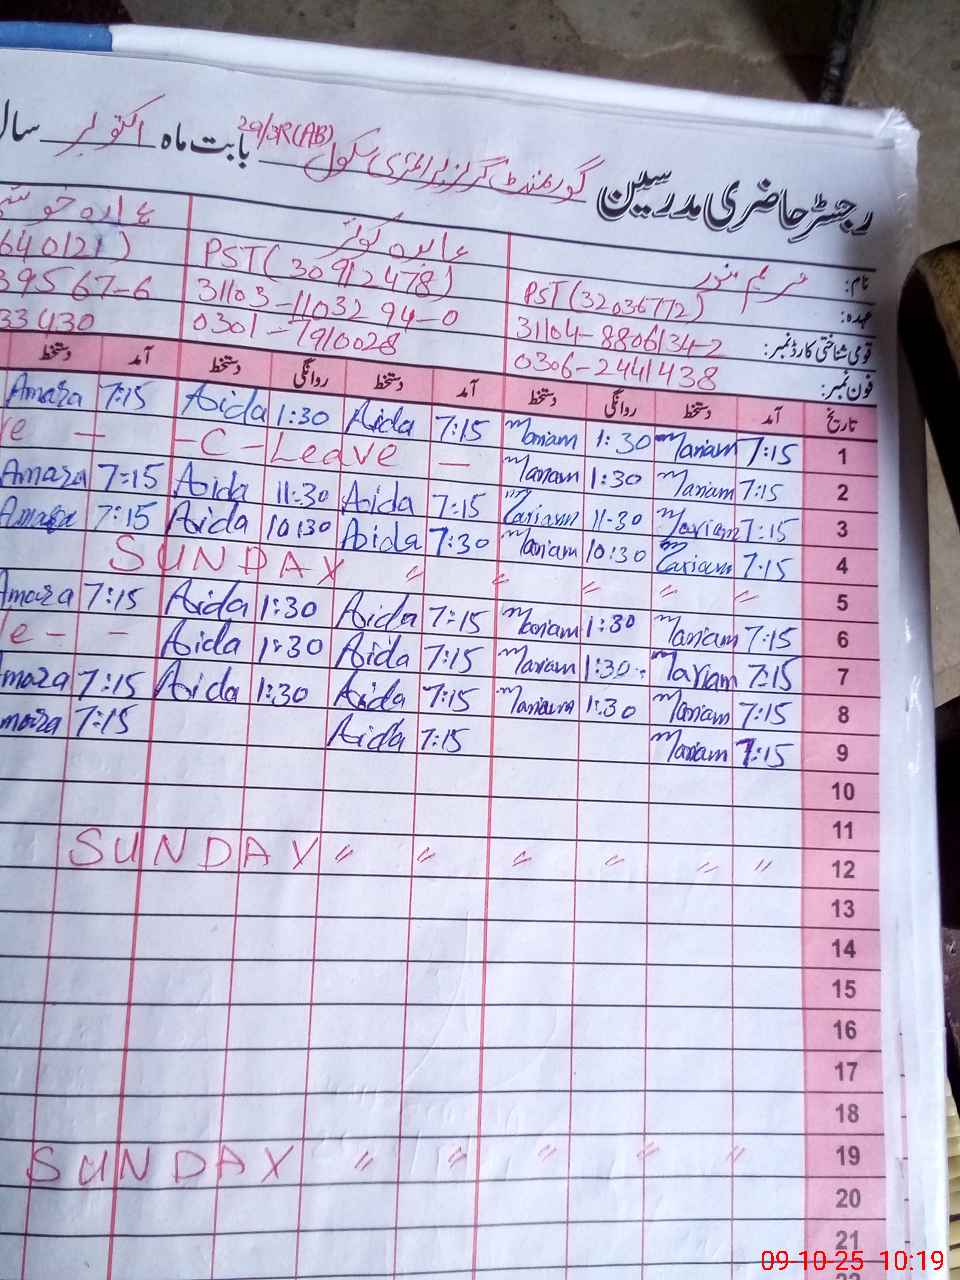 رجسٹر حاضری مدرسین گورنمنٹ گرلز پرائمری سکول 29/3R(AB) بابت ماہ اکتوبر سال
نام: مریم منور عابدہ کوثر
عہدہ: PST(32036772) PST(30912478) 640121)
قومی شناختی کارڈ نمبر: 31104-8806134-2 31103-1103294-0 39567-6
فون نمبر: 0306-2441438 0301-7910028 33430
تاریخ آمد دستخط روانگی دستخط آمد دستخط روانگی دستخط آمد دستخط
1 7:15 Mariam 1:30 Mariam 7:15 Aida 1:30 Aida 7:15 Amara
2 7:15 Mariam 1:30 Mariam — -C-Leave — ve
3 7:15 Mariam 11:30 Mariam 7:15 Aida 11:30 Aida 7:15 Amara
4 7:15 Mariam 10:30 Mariam 7:30 Aida 10:30 Aida 7:15 Amara
5 SUNDAY " " " " "
6 7:15 Mariam 1:30 Mariam 7:15 Aida 1:30 Aida 7:15 Amara
7 7:15 Mariam 1:30 Mariam 7:15 Aida 1:30 Aida - - ve
8 7:15 Mariam 1:30 Mariam 7:15 Aida 1:30 Aida 7:15 mara
9 7:15 Mariam 7:15 Aida 7:15 mara
10
11
12 SUNDAY " " " " " "
13
14
15
16
17
18
19 SUNDAY " " " " "
20
21
09-10-25 10:19